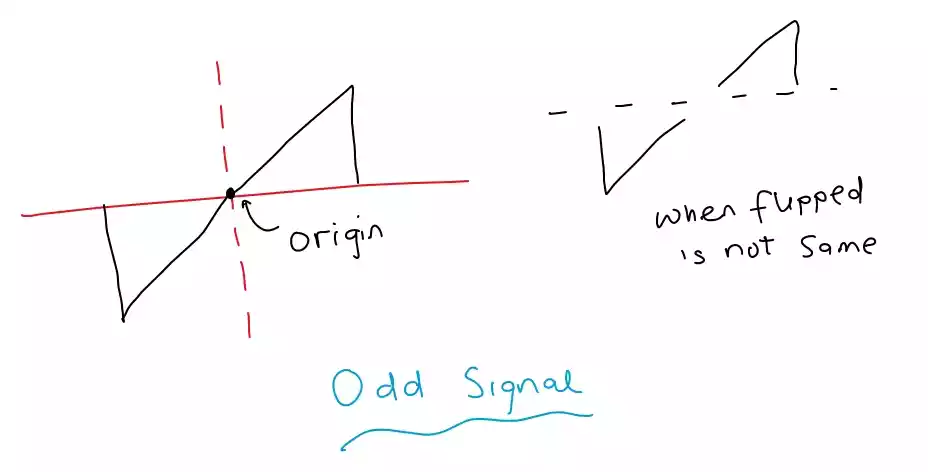 origin
when flipped
is not same
Odd Signal